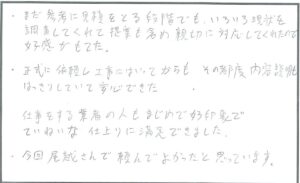 ・まだ参考に見積をとる段階でも、いろいろ現状を
調査してくれて提案も含め親切に対応してくれたので
好感がもてた。
・正式に依頼し工事にはいってからも その都度内容説明
はっきりしていて安心できた
仕事をする業者の人もまじめで好印象で
ていねいな仕上りに満足できました。
・今回尾越さんで頼んでよかったと思っています。